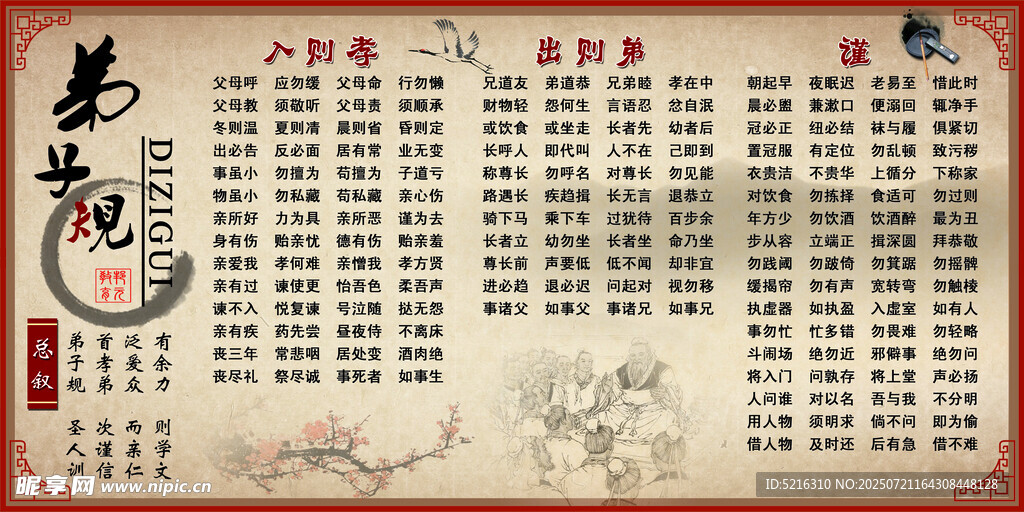 弟子规
DIZIGUI
总叙
弟子规 圣人训
首孝弟 次谨信
泛爱众 而亲仁
有余力 则学文
入则孝
父母呼 应勿缓 父母命 行勿懒
父母教 须敬听 父母责 须顺承
冬则温 夏则凊 晨则省 昏则定
出必告 反必面 居有常 业无变
事虽小 勿擅为 苟擅为 子道亏
物虽小 勿私藏 苟私藏 亲心伤
亲所好 力为具 亲所恶 谨为去
身有伤 贻亲忧 德有伤 贻亲羞
亲爱我 孝何难 亲憎我 孝方贤
亲有过 谏使更 怡吾色 柔吾声
谏不入 悦复谏 号泣随 挞无怨
亲有疾 药先尝 昼夜侍 不离床
丧三年 常悲咽 居处变 酒肉绝
丧尽礼 祭尽诚 事死者 如事生
出则弟
兄道友 弟道恭 兄弟睦 孝在中
财物轻 怨何生 言语忍 忿自泯
或饮食 或坐走 长者先 幼者后
长呼人 即代叫 人不在 己即到
称尊长 勿呼名 对尊长 勿见能
路遇长 疾趋揖 长无言 退恭立
骑下马 乘下车 过犹待 百步余
长者立 幼勿坐 长者坐 命乃坐
尊长前 声要低 低不闻 却非宜
进必趋 退必迟 问起对 视勿移
事诸父 如事父 事诸兄 如事兄
谨
朝起早 夜眠迟 老易至 惜此时
晨必盥 兼漱口 便溺回 辄净手
冠必正 纽必结 袜与履 俱紧切
置冠服 有定位 勿乱顿 致污秽
衣贵洁 不贵华 上循分 下称家
对饮食 勿拣择 食适可 勿过则
年方少 勿饮酒 饮酒醉 最为丑
步从容 立端正 揖深圆 拜恭敬
勿践阈 勿跛倚 勿箕踞 勿摇髀
缓揭帘 勿有声 宽转弯 勿触棱
执虚器 如执盈 入虚室 如有人
事勿忙 忙多错 勿畏难 勿轻略
斗闹场 绝勿近 邪僻事 绝勿问
将入门 问孰存 将上堂 声必扬
人问谁 对以名 吾与我 不分明
用人物 须明求 倘不问 即为偷
借人物 及时还 后有急 借不难
昵享网 www.nipic.cn
ID:5216310 NO:20250721164308448128